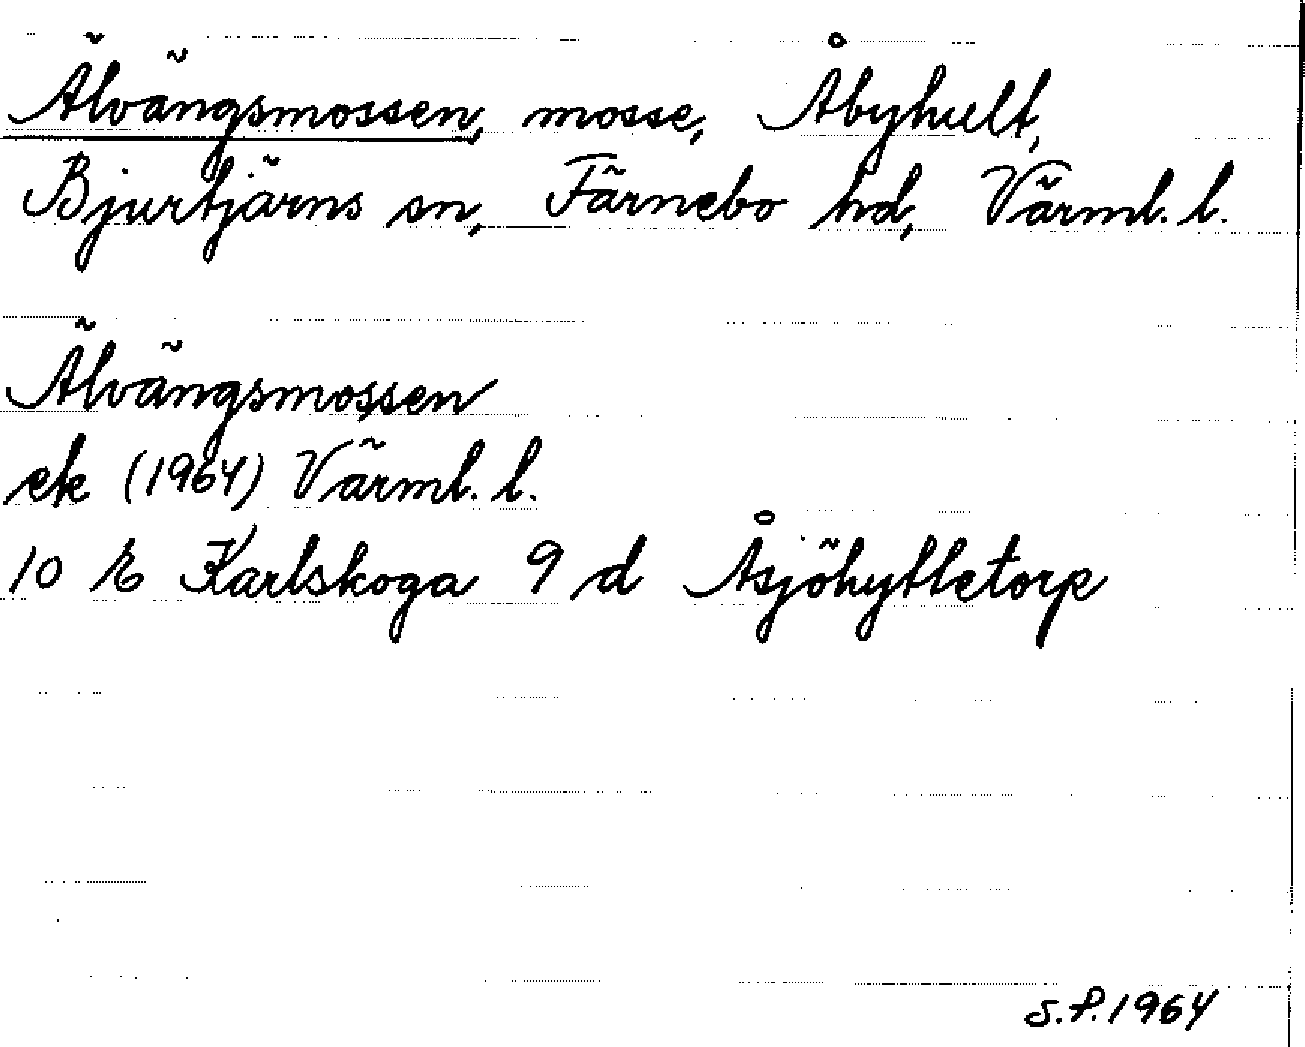 Älvängsmossen, mosse, Åbyhult,
Bjurtjärns sn, Färnebo hd, Värml. l.
Älvängsmossen
ek (1964) Värml. l.
10 E Karlskoga 9 d Åsjöhyttetorp
S.P. 1964